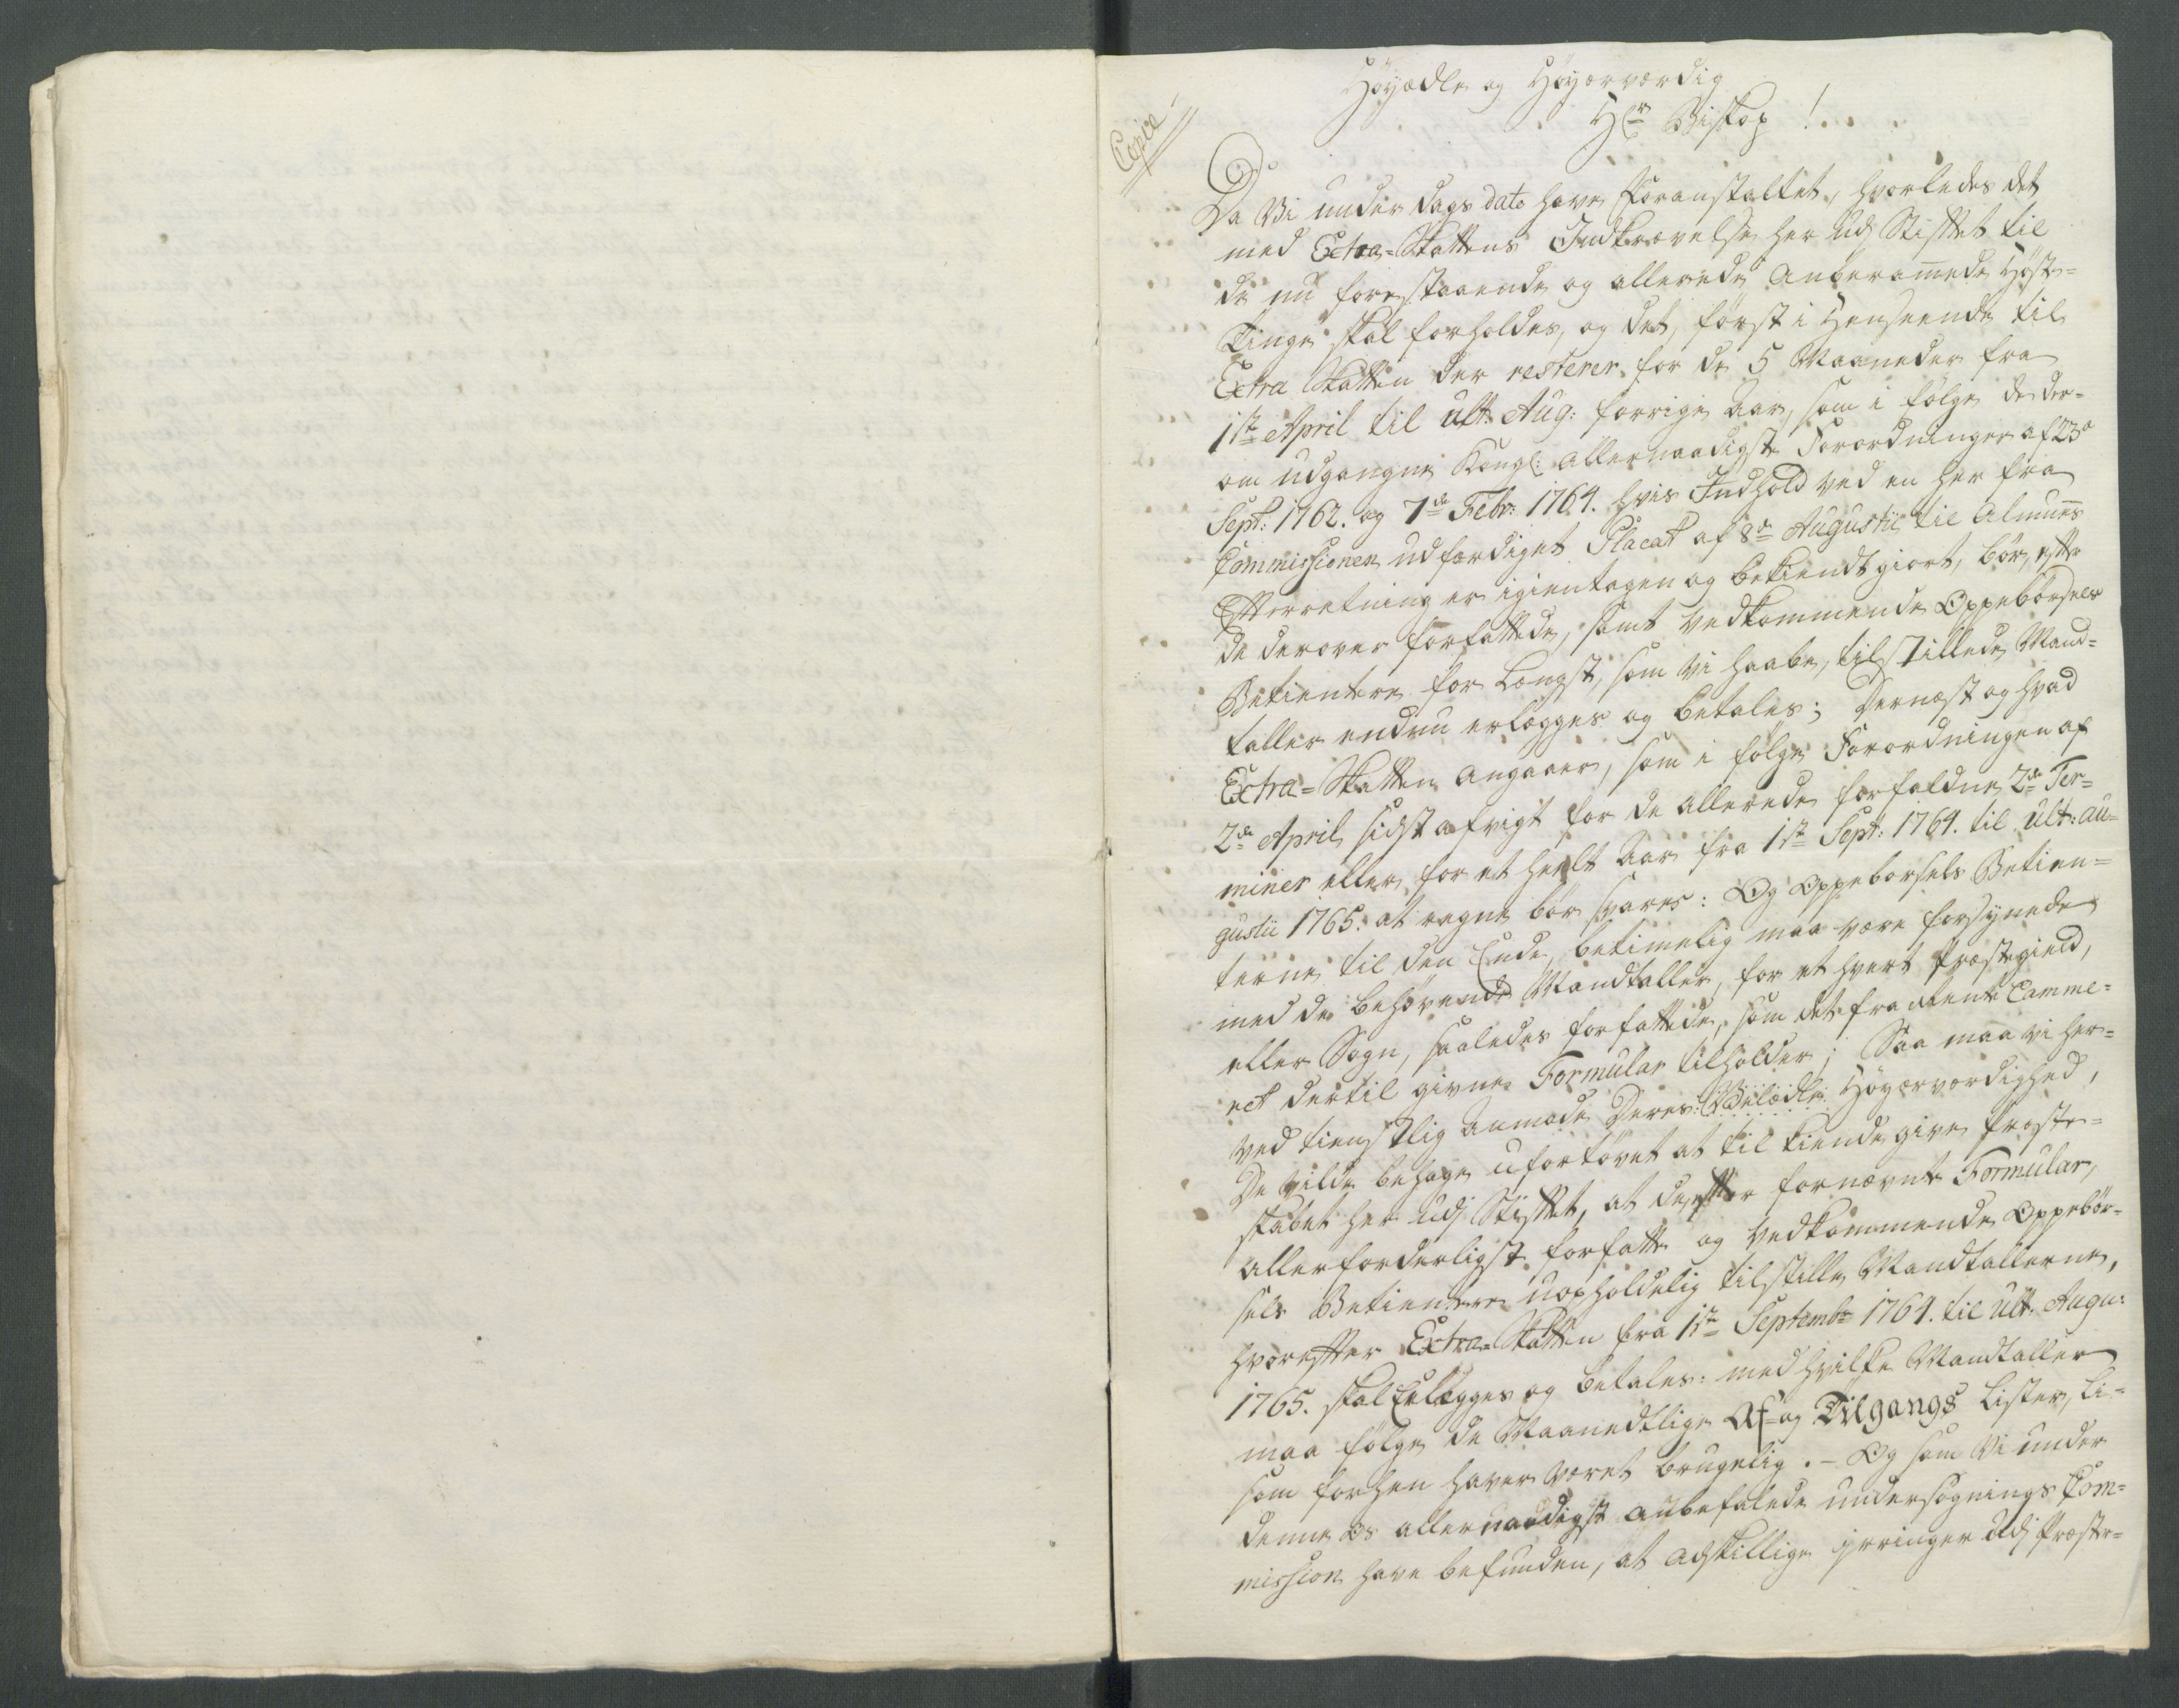 Copie
Høyædle og Høyærværdig
Hr Biskop!
Da Vi under Dags dato have foranstaltet, hvorledes det
med Extra-Skattens Indkrævelse her udj Stiftet til
de nu forestaaende og allerede anberamede Høste-
Tinge skal forholdes, og det, først i Henseende til
Extra Skatten der resterer for de 5 Maaneder fra
1ste April til ult: Aug: forrige Aar, som i følge de der-
om udgangne Kongl: allernaadigste Forordninger af 23de
Sept: 1762. og 7de Febr: 1764. hvis Indhold ved en her fra
Commissionen udfærdiget Placat af 8de Augustii til Almuens
Efterretning er igientagen og bekiendtgiort, bør, efter
de derover forfattede, samt vedkommende Oppebørsels
Betientere for Længst, som vi haabe, tilstillede Mand-
taller endnu erlægges og betales; Dernæst og hvad
Extra-Skatten angaaer, som i følge Forordningen af
2de April sidst afvigt for de allerede forfaldne 2de Ter-
miner eller for et heelt Aar fra 1ste Sept: 1764. til ult: Au-
gustii 1765. at regne bør svares: Og Oppebørsels Betien-
terne til den Ende betimelig maa være forsynede
med de behøvende Mandtaller, for et hvert Præstegield,
eller Sogn, saaledes forfattede, som det fra Rente Camme-
ret dertil givne Formular tilholder; Saa maa vi her-
ved tienstlig anmode Deres Velædle Høyærværdighed,
De vilde behage ufortøvet at til kiende give Præste-
skabet her udj Stiftet, at de efter fornævnte Formular,
allerforderligst forfatte og vedkommende Oppebør-
sels Betientere uopholdelig tilstille Mandtallerne,
hvorefter Extra-Skatten fra 1ste Septembr 1764. til ult: Augu:
1765. skal Erlægges og betales: med hvilke Mandtaller
maa følge de Maanedtlige Af- og Tilgangs Lister, li-
som forhen haver været brugelig. - Og som Vi under
denne os allernaadigst anbefalede undersøgnings Com-
mission have befunden, at adskillige irringer udj Præste-